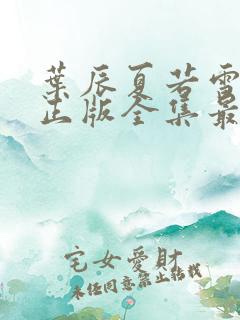 葉辰夏若雪
正版全集最
宅女愛財
未经同意禁止转载